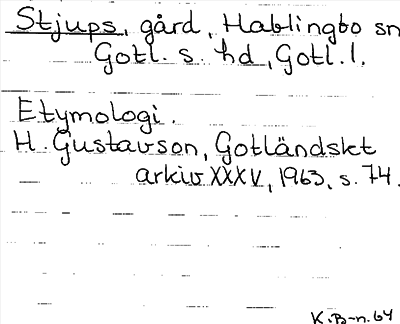 Stjups, gård, Hablingbo sn
Gotl. s. hd, Gotl. l.
Etymologi.
H. Gustavson, Gotländskt
arkiv XXXV, 1963, s. 74.
K. B-n. 64